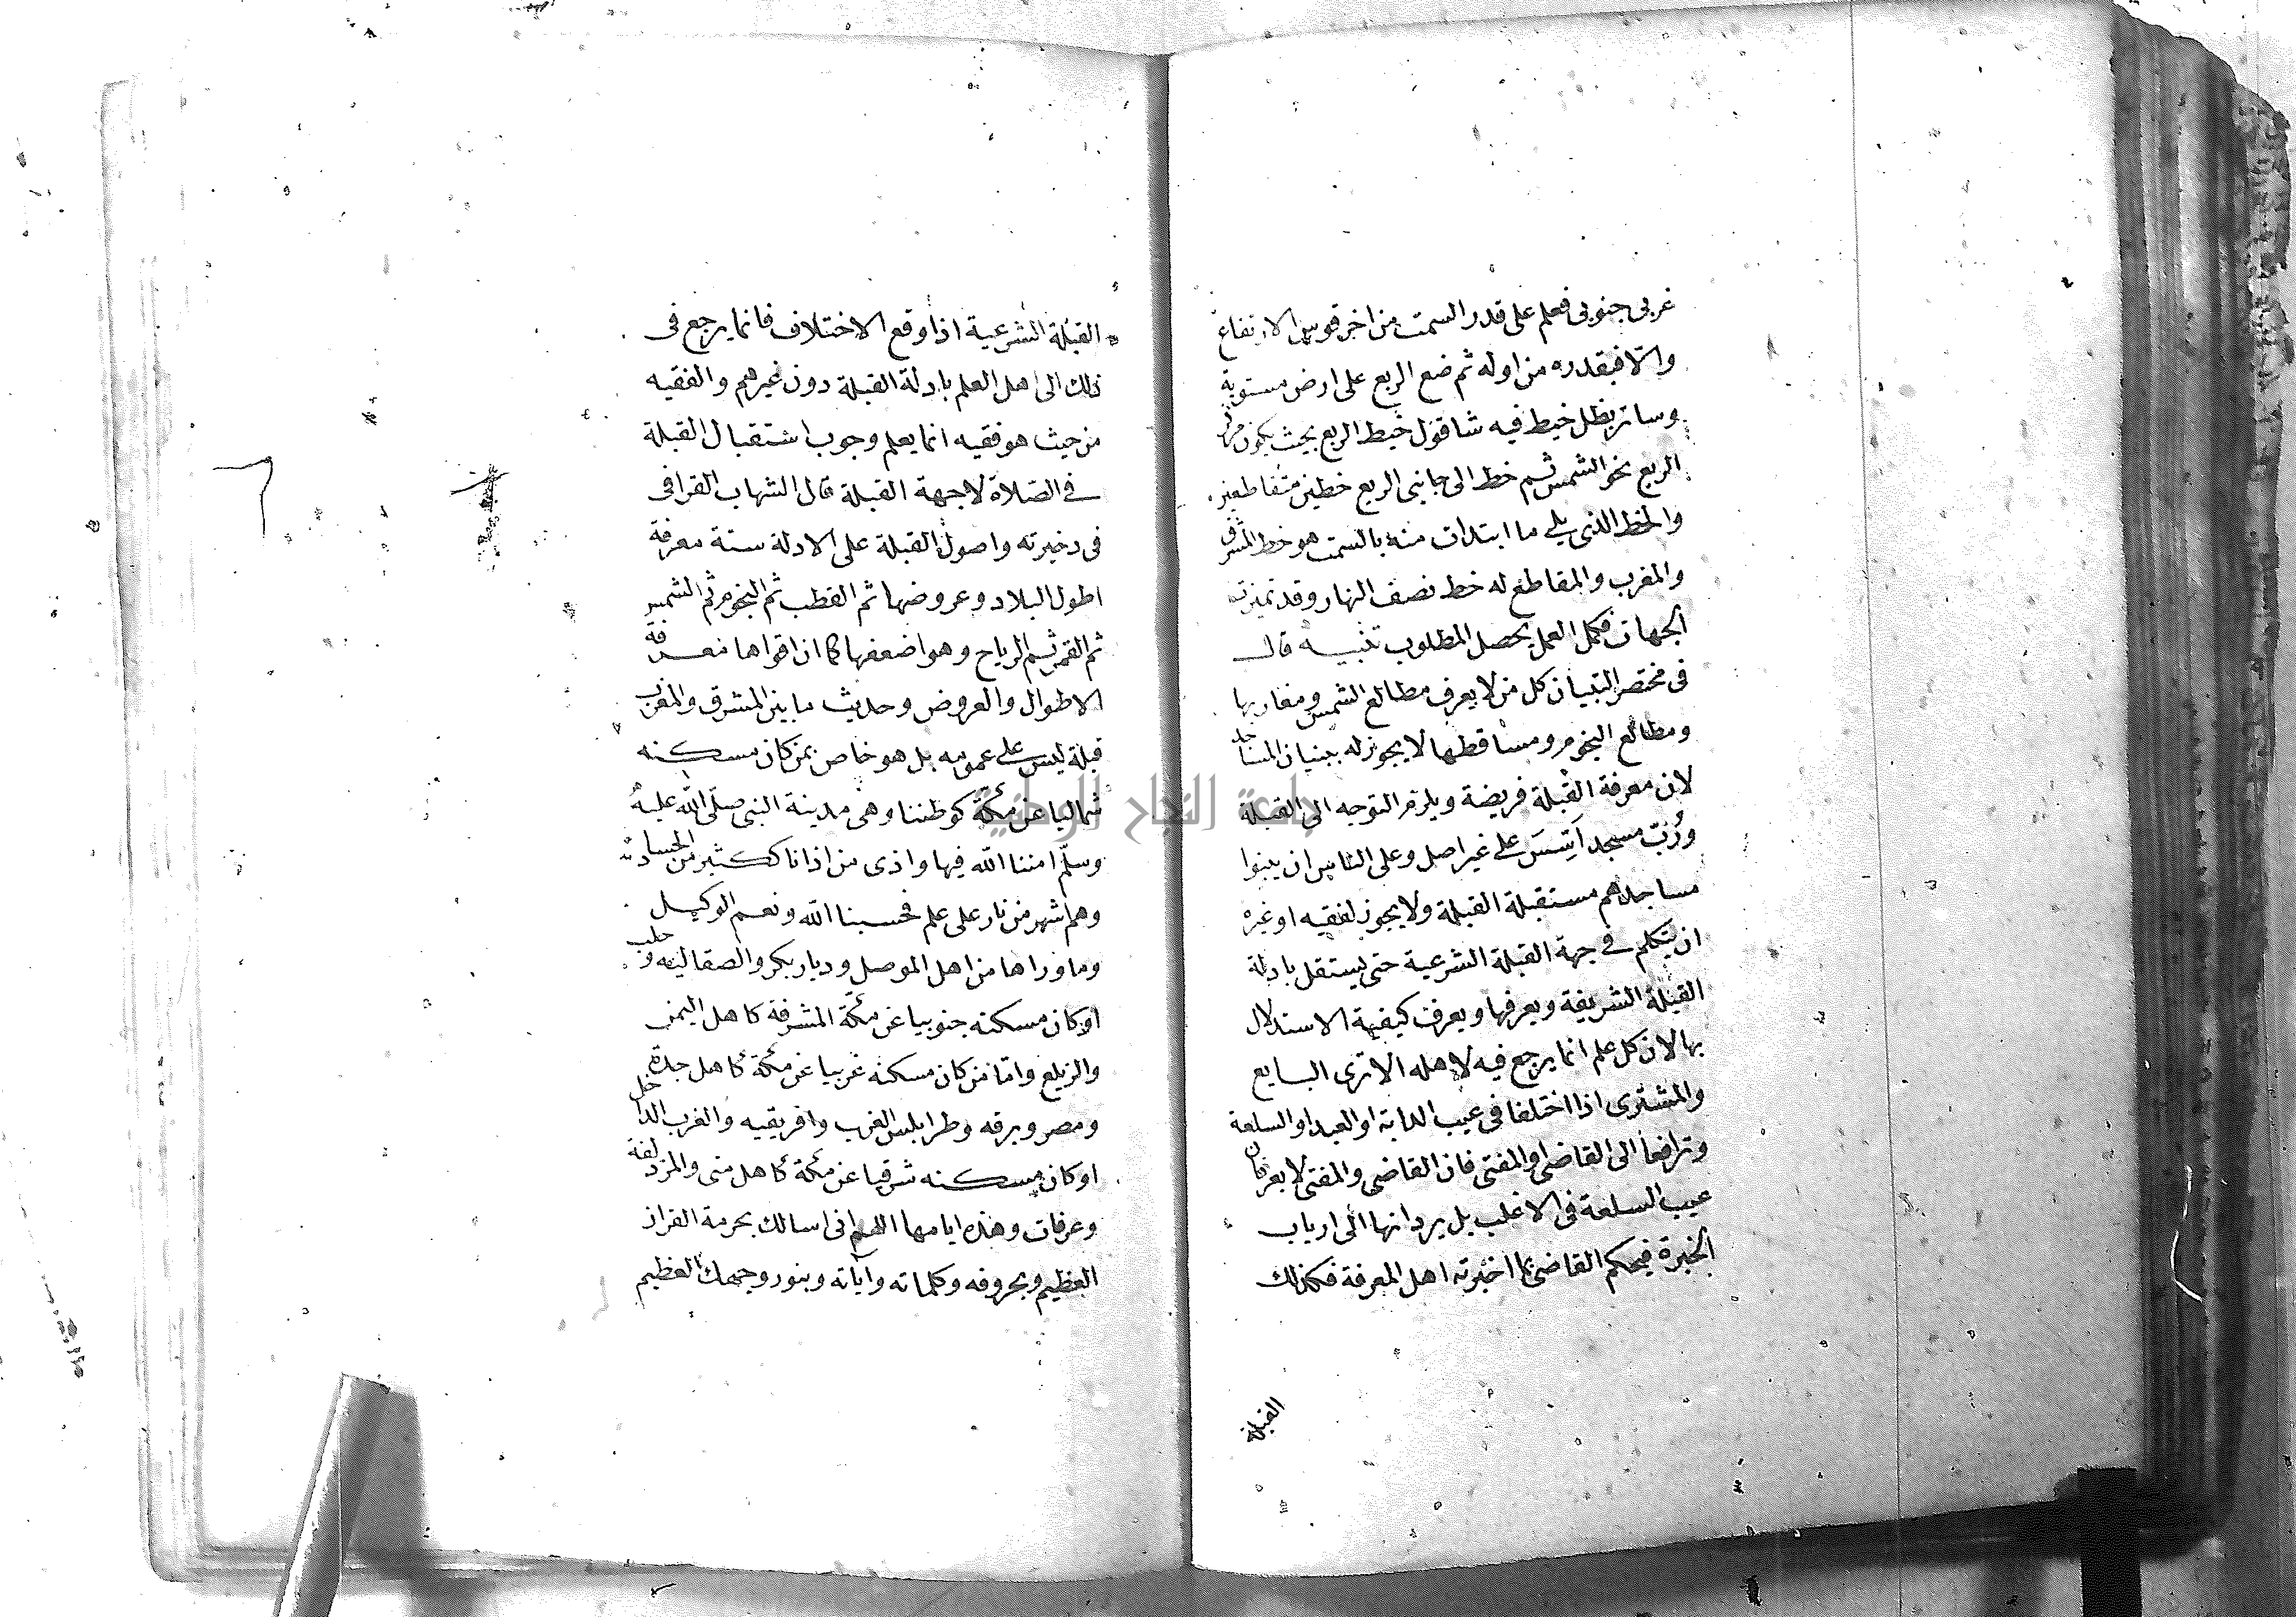 غربي جنوبي فعلم على قدر السمت من اخر قوس الارتفاع
والا فبقدره من اوله ثم ضع الربع على ارض مستوية
وساتر بظل خيط فيه شاقول خيط الربع بحيث يكون مركز
الربع نحو الشمس ثم خط الى جانبي الربع خطين متقاطعين
والخط الذي يلي ما ابتدات منه بالسمت هو خط المشرق
والمغرب والمقاطع له خط نصف النهار وقد تميزت
الجهات فكمل العمل يحصل المطلوب تنبيه قال
في مختصر التبيان كل من لا يعرف مطالع الشمس ومغاربها
ومطالع النجوم ومساقطها لا يجوز له بنيان المساجد
لان معرفة القبلة فريضة ويلزم التوجه الى القبلة
ورُبّ مسجد اُسِّسَ على غير اصل وعلى الناس ان يبنوا
مساجدهم مستقبلة القبلة ولا يجوز لفقيه او غيره
ان يتكلم في جهة القبلة الشرعية حتى يستقل بادلة
القبلة الشريفة ويعرفها ويعرف كيفية الاستدلال
بها لان كل علم انما يرجع فيه لاهله الا ترى البايع
والمشترى اذا اختلفا في عيب الدابة او العبد او السلعة
وترافعا الى القاضي او المفتي فان القاضي والمفتي لا يعرفان
عيب السلعة في الاغلب بل يردانها الى ارباب
الخبرة فيحكم القاضي بما اخبرته اهل المعرفة فكذلك
القبلة
القبلة الشرعية اذا وقع الاختلاف فانما يرجع في
ذلك الى اهل العلم بادلة القبلة دون غيرهم والفقيه
من حيث هو فقيه انما يعلم وجوب استقبال القبلة
في الصلاة لا جهة القبلة قال الشهاب القرافي
في دخيرته واصول القبلة على الادلة ستة معرفة
اطول البلاد وعروضها ثم القطب ثم النجوم ثم الشمس
ثم القمر ثم الرياح وهو اضعفها كما ان اقواها معرفة
الاطوال والعروض وحديث ما بين المشرق والمغرب
قبلة ليس على عمومه بل هو خاص بمن كان مسكنه
شماليا عن مكّة كوطننا وهي مدينة النبي صلّى الله عليه
وسلّم امننا الله فيها واذى من اذانا ككثير من الحساد
وهم اشهر من نار على علم فحسبنا الله ونعم الوكيل
وما وراها من اهل الموصل وديار بكر والصقالبه وحلب
او كان مسكنه جنوبيا عن مكّة المشرفة كاهل اليمن
والزيلع وامّا من كان مسكنه غربيا عن مكّة كاهل جدة
ومصر وبرقه وطرابلس الغرب وافريقيه والغرب الداخل
او كان مسكنه شرقيا عن مكّة كاهل منى والمزدلفة
وعرفات وهذه ايامها اللهم اني اسالك بحرمة القران
العظيم وبحروفه وكلماته واياته وبنور وجهك العظيم
جامعة النجاح الوطنية